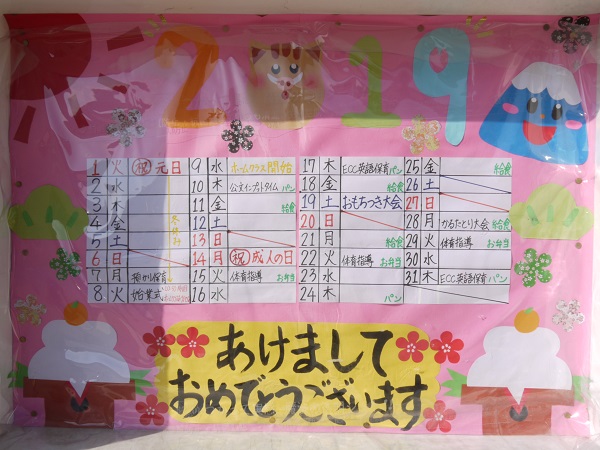 2019
1 火 祝 元日
2 水
3 木
4 金
5 土
6 日
7 月 預かり保育
8 火 始業式
冬休み
9 水 ホームクラス開始
10 木 公文インプットタイム パン
11 金 給食
12 土
13 日
14 月 祝 成人の日
15 火 体育指導 お弁当
16 水
17 木 ECC英語保育 パン
18 金 給食
19 土 おもちつき大会
20 日
21 月 給食
22 火 体育指導 お弁当
23 水
24 木 パン
25 金 給食
26 土
27 日
28 月 かるたとり大会 給食
29 火 体育指導 お弁当
30 水
31 木 ECC英語保育 パン
あけまして
おめでとうございます